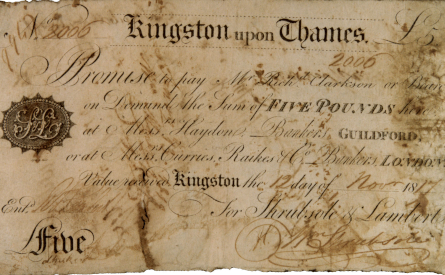 No. 2006 Kingston upon Thames. £5
2006
I Promise to pay Mr. Richd. Clarkson or Bearer
on Demand the Sum of FIVE POUNDS here
at Messrs. Haydons, Bankers, GUILDFORD,
or at Messrs. Curries, Raikes & Co. Bankers, LONDON
Value received Kingston the 12 day of Novr. 1817
For Shrubsole & Lambert
Entd.
Five